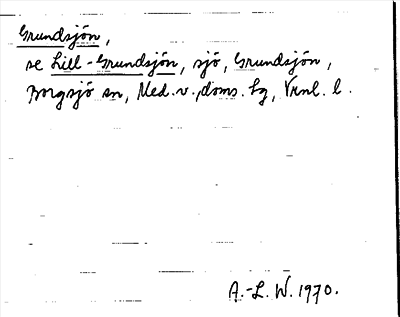 Grundsjön,
se Lill-Grundsjön, sjö, Grundsjön,
Borgsjö sn, Med. v. doms. hg, Vrnl. l.
A.-L. W. 1970.